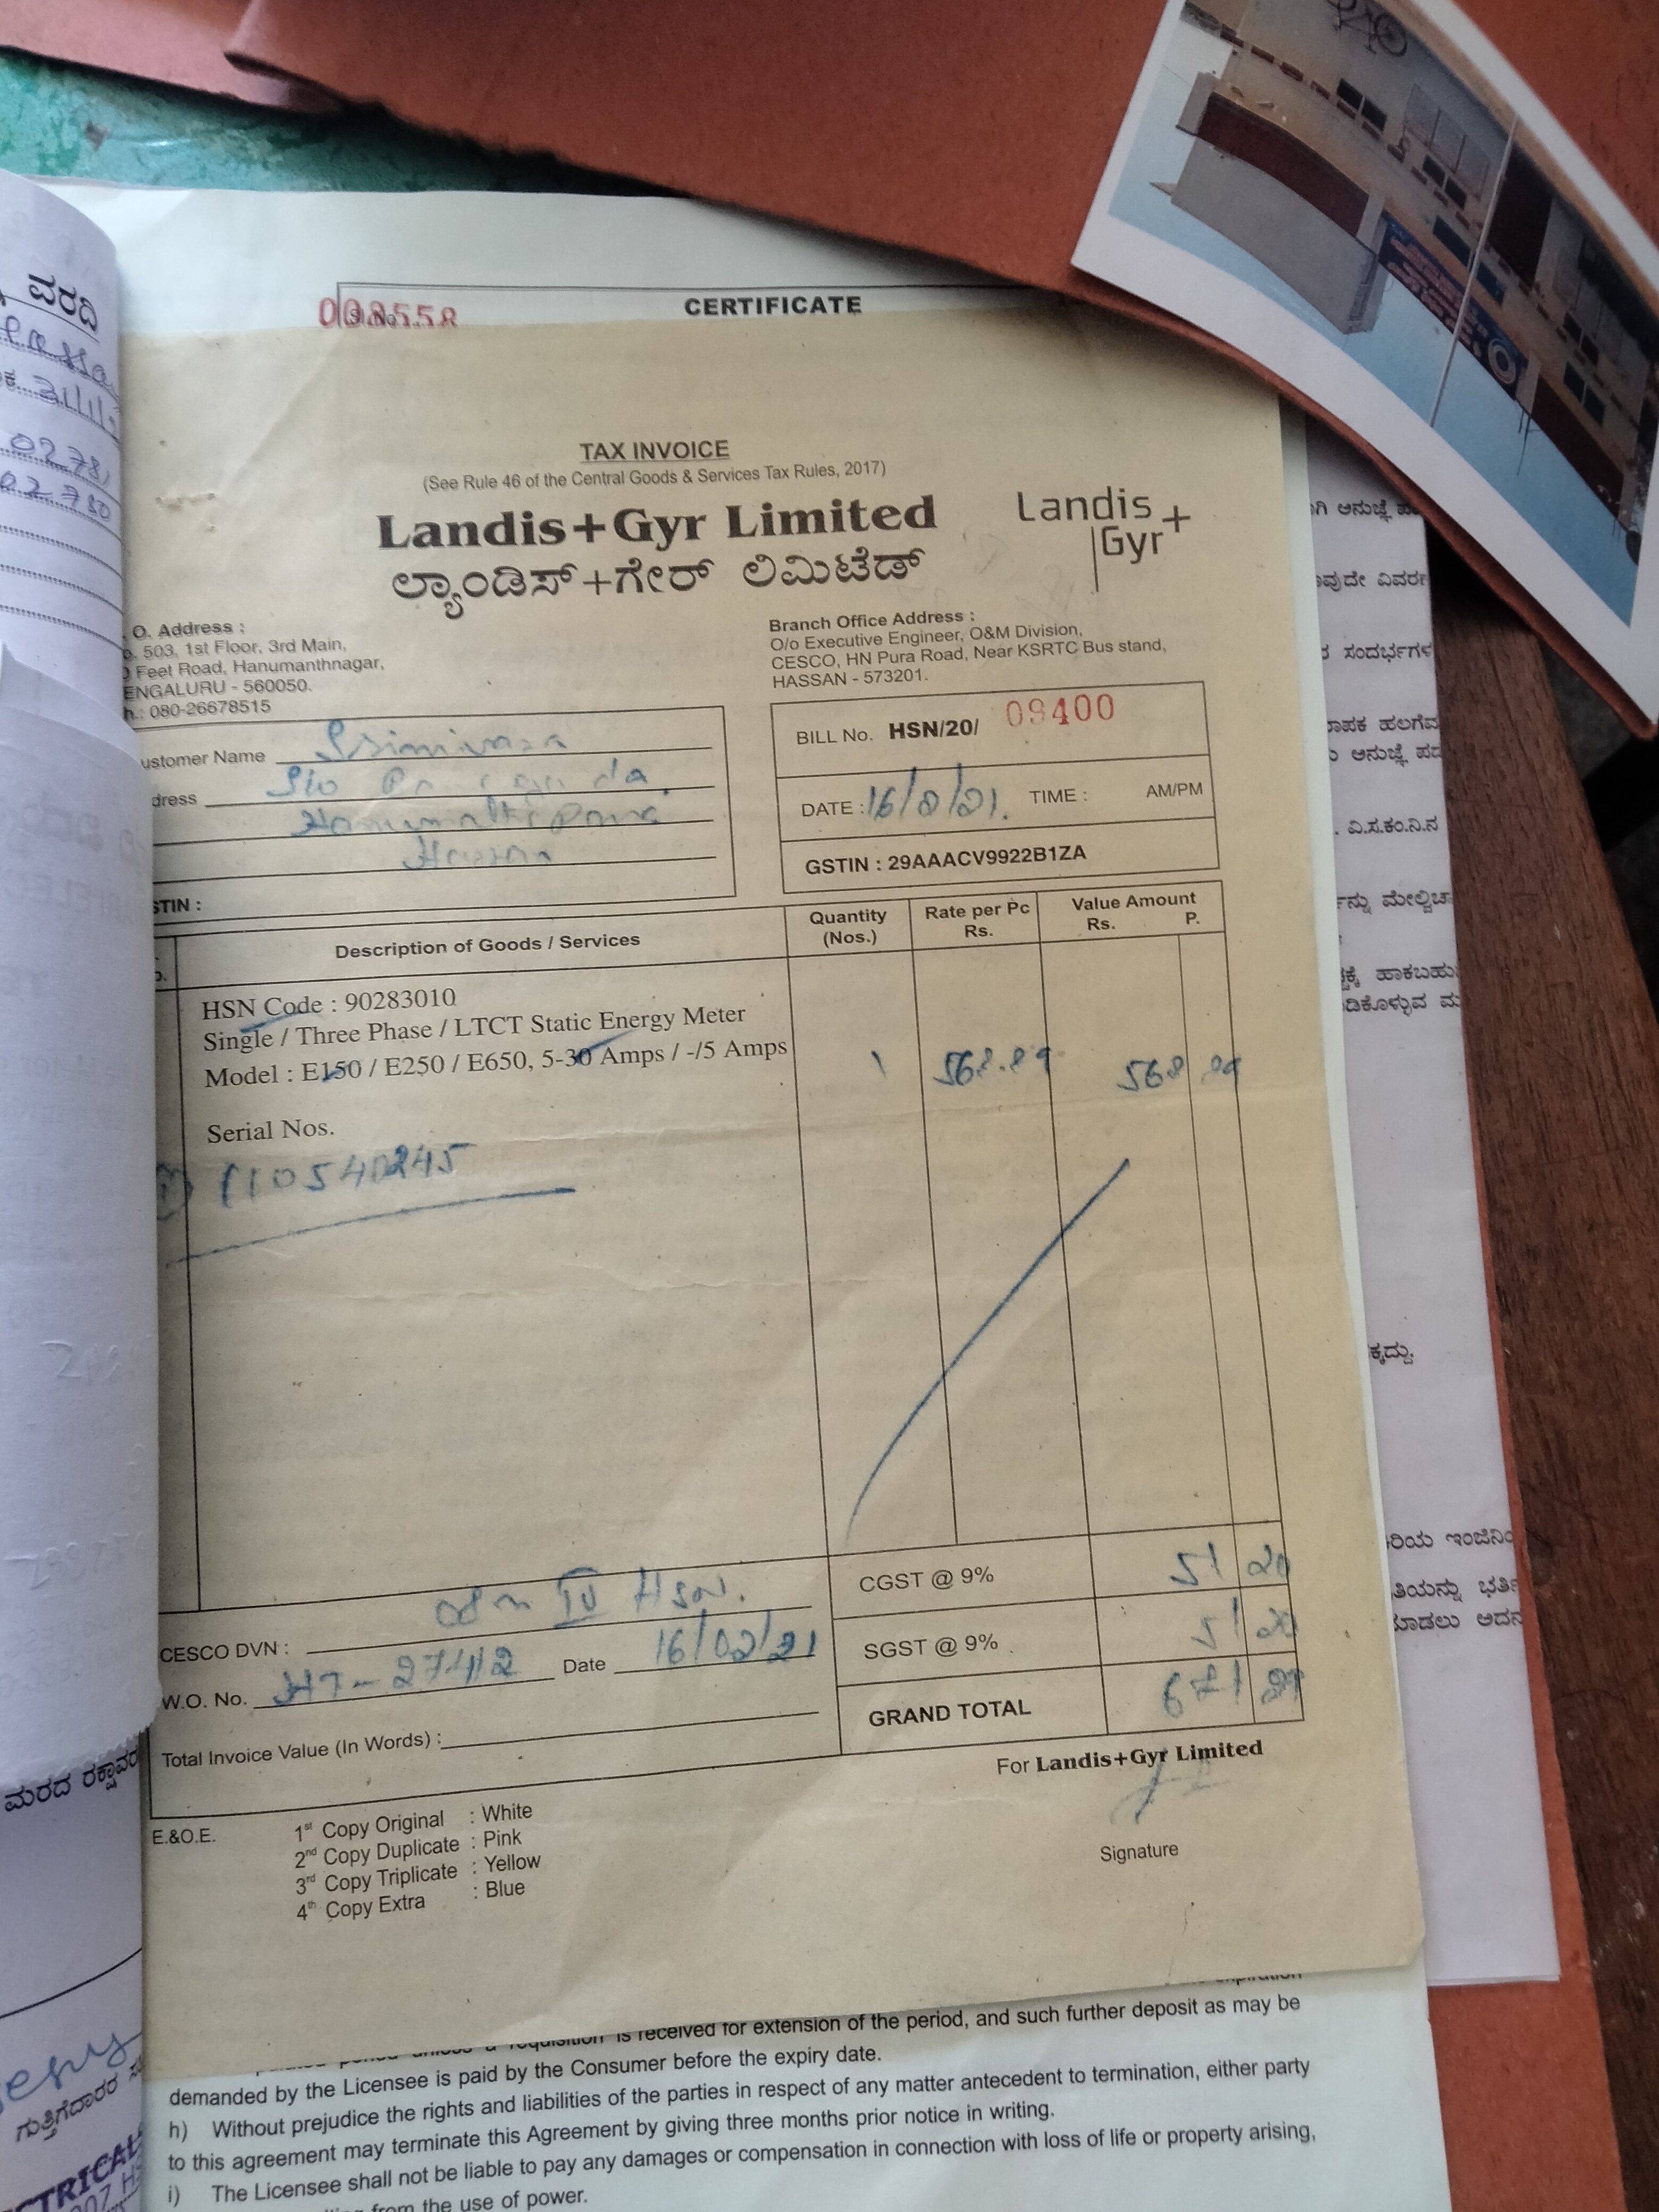 ವರದಿ
0278,
02780
008558
CERTIFICATE
TAX INVOICE
(See Rule 46 of the Central Goods & Services Tax Rules, 2017)
Landis+Gyr Limited
Landis+
Gyr
ಲ್ಯಾಂಡಿಸ್+ಗೇರ್ ಲಿಮಿಟೆಡ್
O. Address :
503, 1st Floor, 3rd Main,
Feet Road, Hanumanthnagar,
ENGALURU - 560050.
: 080-26678515
Branch Office Address :
O/o Executive Engineer, O&M Division,
CESCO, HN Pura Road, Near KSRTC Bus stand,
HASSAN - 573201.
ustomer Name Srinivasa
dress S/o
Hassan
STIN :
BILL No. HSN/20/ 09400
DATE : 16/2/21. TIME : AM/PM
GSTIN : 29AAACV9922B1ZA
Description of Goods / Services
Quantity (Nos.)
Rate per Pc Rs.
Value Amount Rs. P.
HSN Code : 90283010
Single / Three Phase / LTCT Static Energy Meter
Model : E150 / E250 / E650, 5-30 Amps / -/5 Amps
1 568.89 568 89
Serial Nos.
110540245
CGST @ 9% 51 20
SGST @ 9% 51 20
GRAND TOTAL 671 29
CESCO DVN : IV HSN.
W.O. No. 27412 Date 16/02/21
Total Invoice Value (In Words) :
For Landis+Gyr Limited
Signature
E.&O.E.
1st Copy Original : White
2nd Copy Duplicate : Pink
3rd Copy Triplicate : Yellow
4th Copy Extra : Blue
requisition is received for extension of the period, and such further deposit as may be
demanded by the Licensee is paid by the Consumer before the expiry date.
h) Without prejudice the rights and liabilities of the parties in respect of any matter antecedent to termination, either party
to this agreement may terminate this Agreement by giving three months prior notice in writing.
i) The Licensee shall not be liable to pay any damages or compensation in connection with loss of life or property arising,
from the use of power.
ಅನುಜ್ಞೆ
ವಿವರ
ಸಂದರ್ಭಗಳ
ಹಲಗೆಯ
ಅನುಜ್ಞೆ ಪದ
ವಿ.ಸ.ಕಂ.ನಿ.ನ
ಹಾಕಬಹು
ಇಂಜಿನಿ
ಭರ್ತಿ
ಮಾಡಲು ಅದನ
ಮರದ
ಗುತ್ತಿಗೆದಾರರ